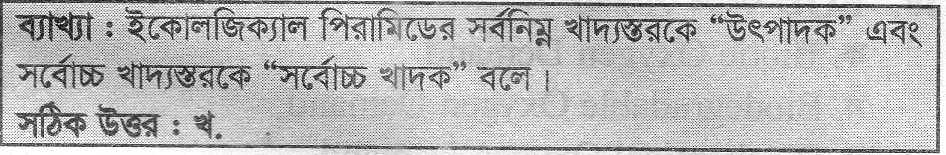 ব্যাখ্যা : ইকোলজিক্যাল পিরামিডের সর্বনিম্ন খাদ্যস্তরকে “উৎপাদক” এবং
সর্বোচ্চ খাদ্যস্তরকে “সর্বোচ্চ খাদক” বলে।
সঠিক উত্তর : খ.